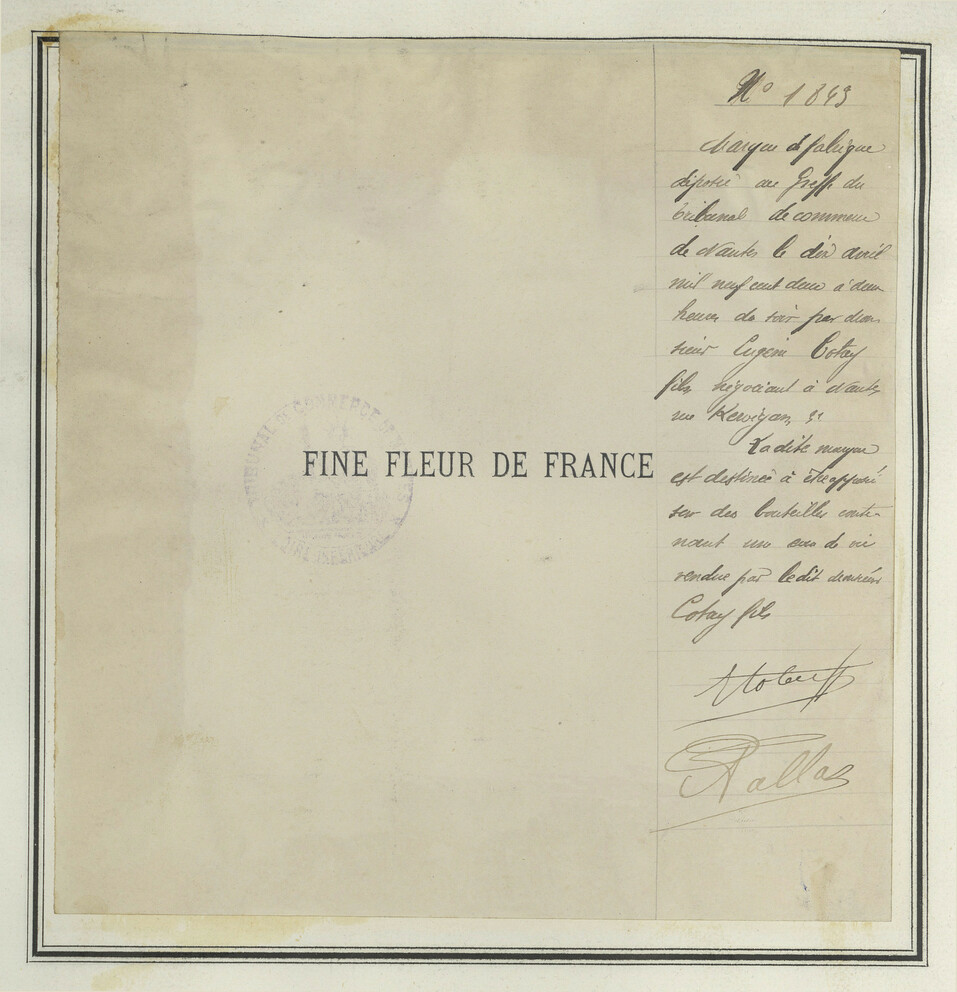 No 1843
Marque de fabrique
déposée au Greffe du
tribunal de commerce
de Nantes le dix avril
mil neuf cent deux à deux
heures du soir par mon-
sieur Eugène Cotay
fils négociant à Nantes
rue Kervégan,
Ladite marque
est destinée à être apposée
sur des bouteilles conte-
nant une eau de vie
vendue par ledit monsieur
Cotay fils
FINE FLEUR DE FRANCE
TRIBUNAL DE COMMERCE DE NANTES